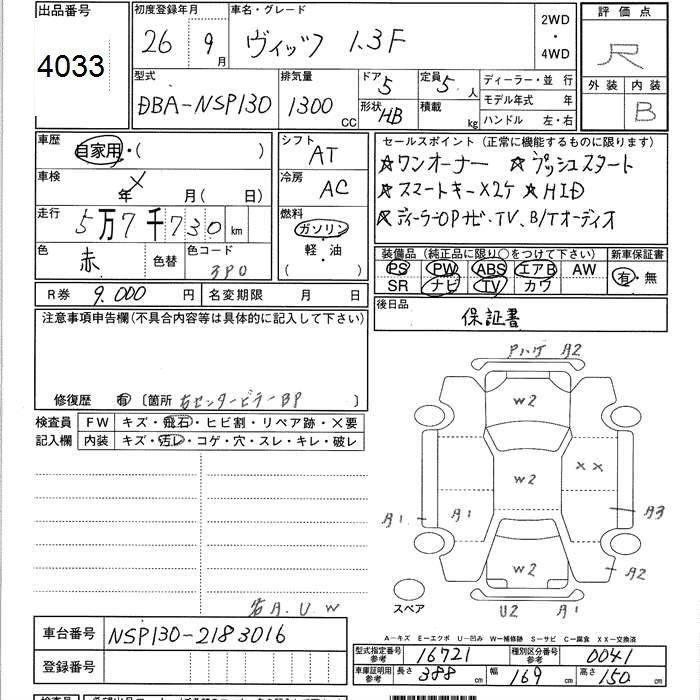 出品番号
4033
初度登録年月
26 9月
車名・グレード
ヴィッツ 1.3F
2WD
・
4WD
評価点
R
外装 内装
B
型式
DBA-NSP130
排気量
1300 CC
ドア 5
形状 HB
定員 5人
積載 kg
ディーラー・並行
モデル年式 年
ハンドル 左・右
車歴
自家用・( )
車検
× 年 月(日)
走行
5万7千730 km
色
赤
色替
色コード
3P0
シフト
AT
冷房
AC
燃料
ガソリン
軽・油
( )
セールスポイント(正常に機能するものに限ります)
☆ワンオーナー ☆プッシュスタート
☆スマートキー×2ケ ☆HID
☆ディーラーOPナビ、TV、B/Tオーディオ
装備品(純正品に限り○をつけて下さい) 新車保証書
PS PW ABS エアB AW
SR ナビ TV カワ
有・無
R券 9.000円 名変期限 月 日
後日品
保証書
注意事項申告欄(不具合内容等は具体的に記入して下さい)
修復歴 有 〔箇所 右センターピラーBP 〕
検査員
記入欄
FW キズ・飛石・ヒビ割・リペア跡・×要
内装 キズ・汚レ・コゲ・穴・スレ・キレ・破レ
Pハゲ A2
W2
W2
XX
A1
A1
A3
W2
A2
U2 A1
スペア
A.U.W
A-キズ E-エクボ U-凹み W-補修跡 S-サビ C-腐食 XX-交換済
車台番号 NSP130-2183016
登録番号
型式指定番号 参考 16721
種別区分番号 参考 0041
車庫証明用 参考 長さ 388 cm 幅 169 cm 高さ 150 cm